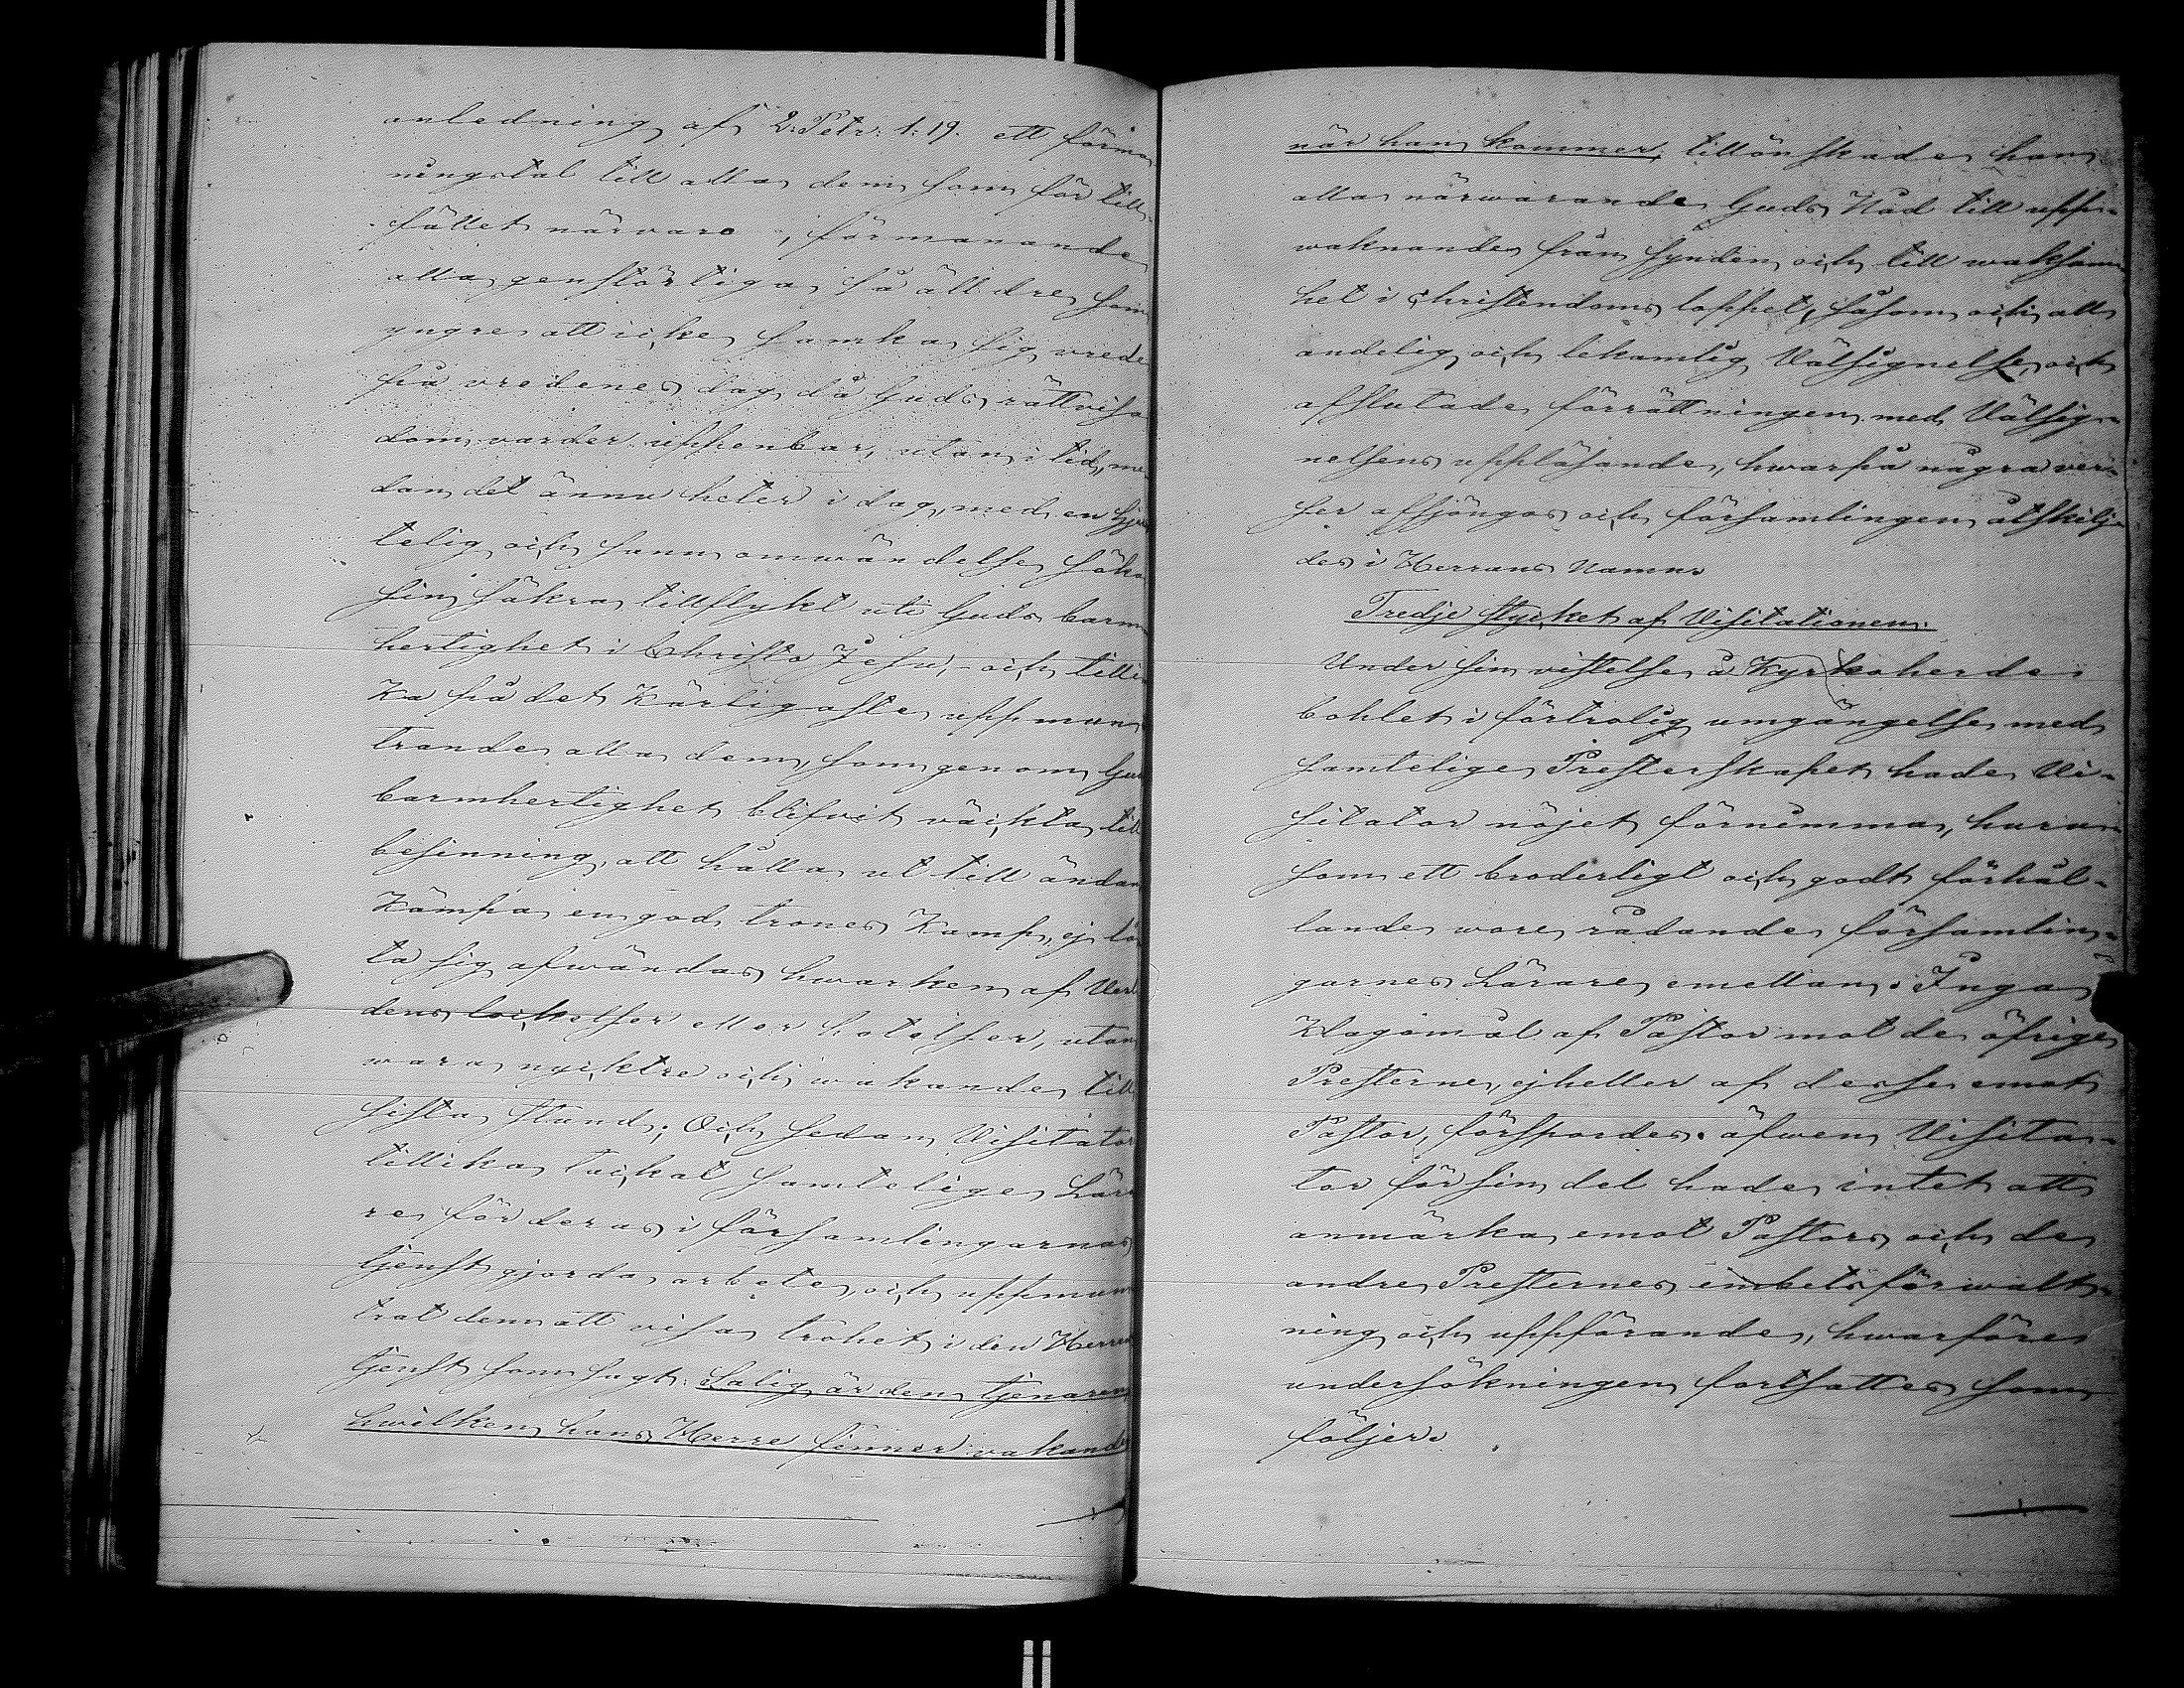 anledning af 2. Petr: 1: 19. ett förma
ningstal till alla dem som för till
fället närvaro, förmanande
alla genstörtiga så äldre som
yngre att icke samka sig vrede
på vredenes dag, då Guds rättvisa
dom varder uppenbar, utan i tid, me
dan det ännu heter i dag, med en hjer
telig och sann omwändelse söka
sin säkra tillflykt uti Guds barm
hertighet i Christo Jesu; och tilli
ka på det kärligaste uppmun
trande alla dem, som genom Guds
barmhertighet blifvit väckta till
besinning, att hålla ut till ändan
Kämpa en god trones Kamp, ej lå
ta sig afwändas hwarken af Verl
dens lockelser eller hotelser, utan
wara nycktre och wakande till
sista stund; Och sedan Visitator
tillika tackat samtelige Lära
re för deras i församlingarnas
tjenst gjorda arbete, och uppmun
trat dem att visa trohet i den Herren
tjenst som sagt: Salig är den tjenaren
hwilken hans Herre finner vakande
när han kommer, tillönskade han
alla närwarande Guds Nåd till upp-
waknande från synden och till waksam
het i christendoms loppet, såsom och all
andelig och lekamlig Välsignelse, och
afslutade förrättningen med Välsig-
nelsens uppläsande, hwarpå några ver-
ser afsjöngos och församlingen åtskilj-
des i Herrans Namn.
Tredje stycket af Visitationen.
Under sin vistelse å Kyrkoherde
bohlet i förtrolig umgängelse med
samtelige Presterskapet hade Vi-
sitator nöjet förnimma, huru
som ett broderligt och godt förhål-
lande wore rådande församlin-
garnes Lärare emellan. Inga
Klagomål af Pastor mot de öfrige
Presterne, ej heller af desse emot
Pastor, förspordes. äfwen Visita-
tor för sin del hade intet att
anmärka emot Pastors och de
andre Presternes embetsförwalt-
ning och uppförande, hwarföre
undersökningen fortsattes som
följer.